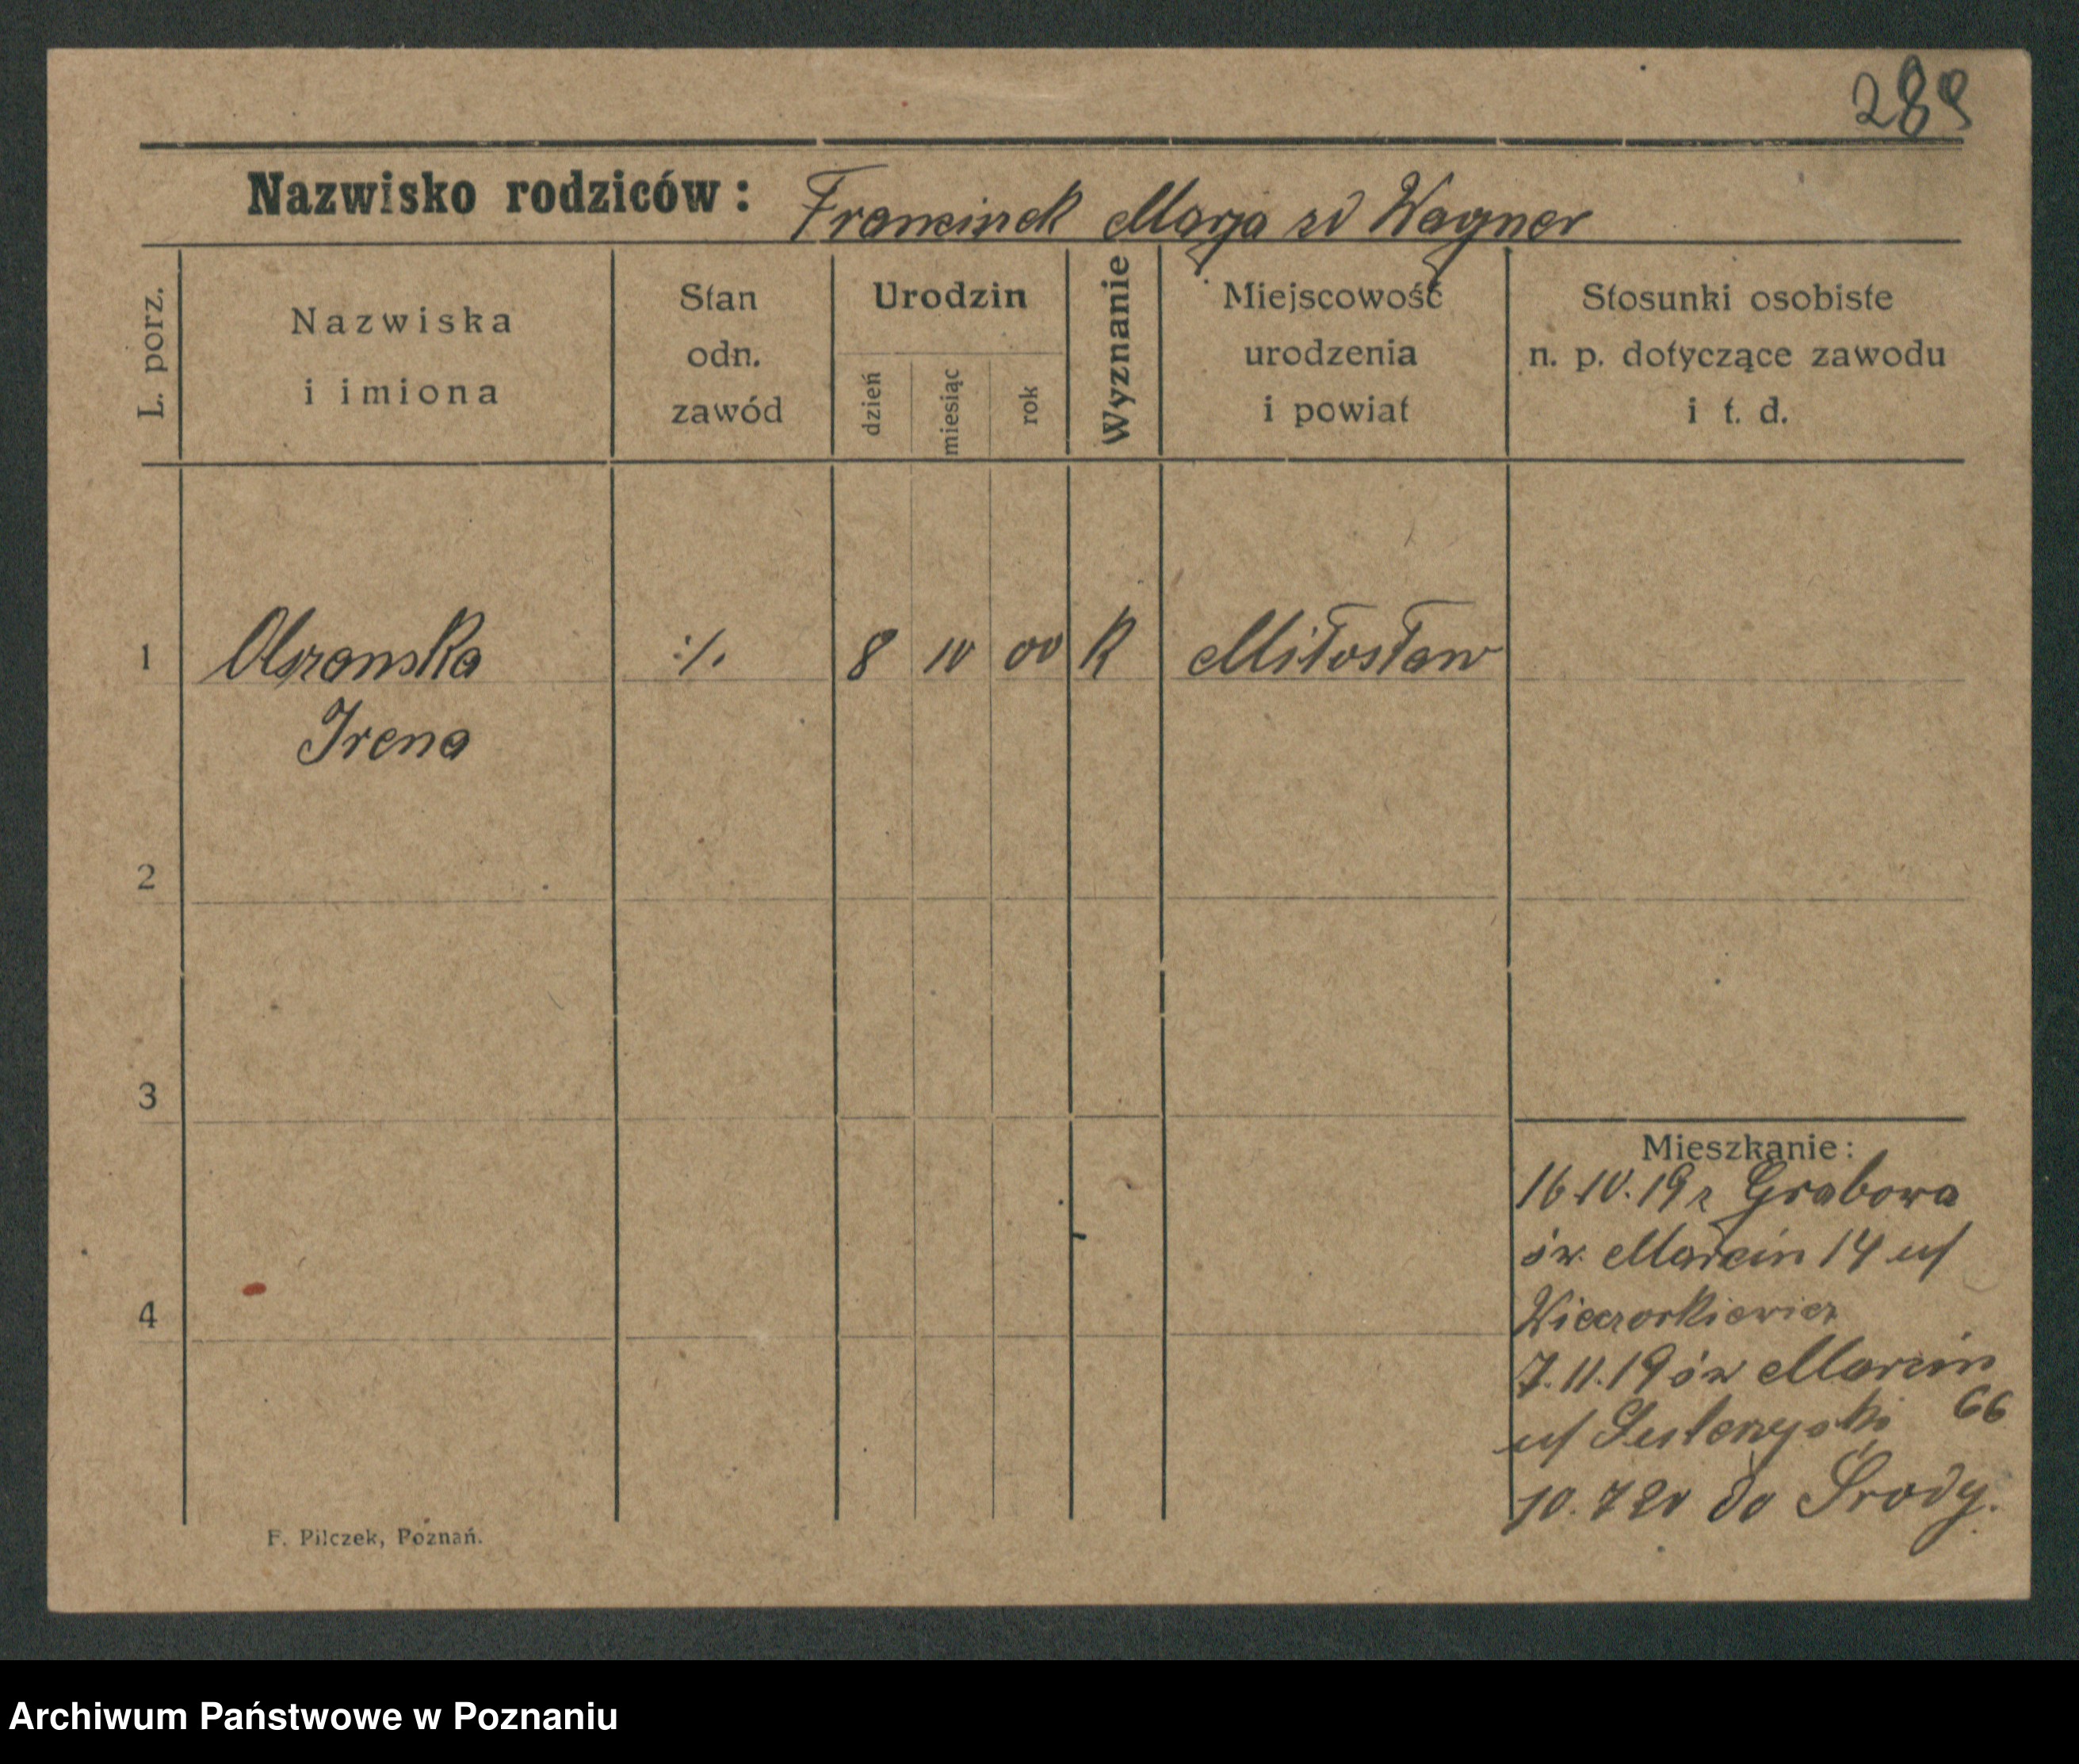 289
Nazwisko rodziców: Franciszek Marja zd Wagner
L. porz.
Nazwiska
i imiona
Stan
odn.
zawód
Urodzin
dzień
miesiąc
rok
Wyznanie
Miejscowość
urodzenia
i powiat
Stosunki osobiste
n. p. dotyczące zawodu
i t. d.
1 ./. 8 10 00 K Miłosław
Irena
2
3
4
Mieszkanie:
16.10.19 z Grabowa
św. Marcin 14 u/
Wieczorkiewicz
7.11.19 św Marcin
66
u/
10.7 20 do Środy.
F. Pilczek, Poznań.
Archiwum Państwowe w Poznaniu